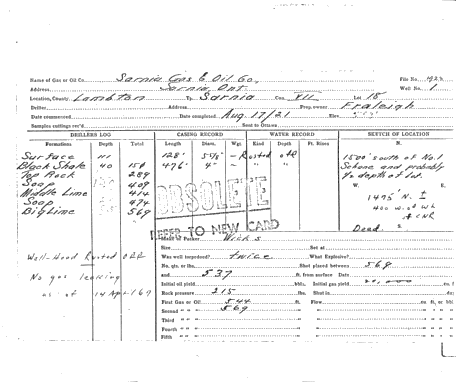 Name of Gas or Oil Co. Sarnia Gas & Oil Co. File No.
Address Sarnia, Ont. Well No. 1
Location, County Lambton Tp. Sarnia Con. VII Lot 18
Driller Address Prop. owner Fraleigh
Date commenced Date completed Aug. 17/21 Elev.
Samples cuttings rec'd. Sent to Ottawa
DRILLERS LOG CASING RECORD WATER RECORD SKETCH OF LOCATION
Formations Depth Total Length Diam. Wgt. Kind Depth Ft. Rises N.
Surface 111 128' 5 5/8" - Rusted off
Black Shale 40 476' 4" "
Top Rock 289
Soap 409
Middle Lime 414
Soap 474
Big Lime 569
1500' south of No.1
Schone and probably
1/2 depth of lot.
W. E.
1475' N. ±
400 W. of
CNR
Dead S
OBSOLETE
REFER TO NEW CARD
Make of Packer
Size Set at
Was well torpedoed? twice What Explosive?
No. qts. or lbs. Shot placed between 568
and 537 ft. from surface Date
Initial oil yield bbls. Initial gas yield
Rock pressure 215 lbs. Shut in
First Gas or Oil 544 ft. Flow cu. ft. or bbl
Second " " 569 " "
Third " " " "
Fourth " " " "
Fifth
Well-Head Rusted off
No gas leaking
as of 14 Apr 169